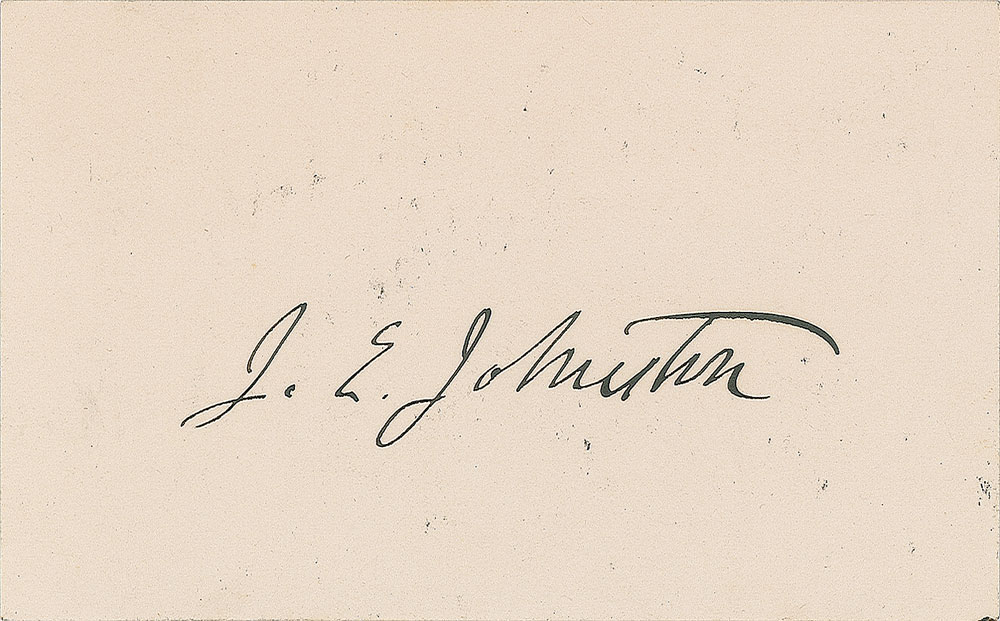 J. E. Johnston